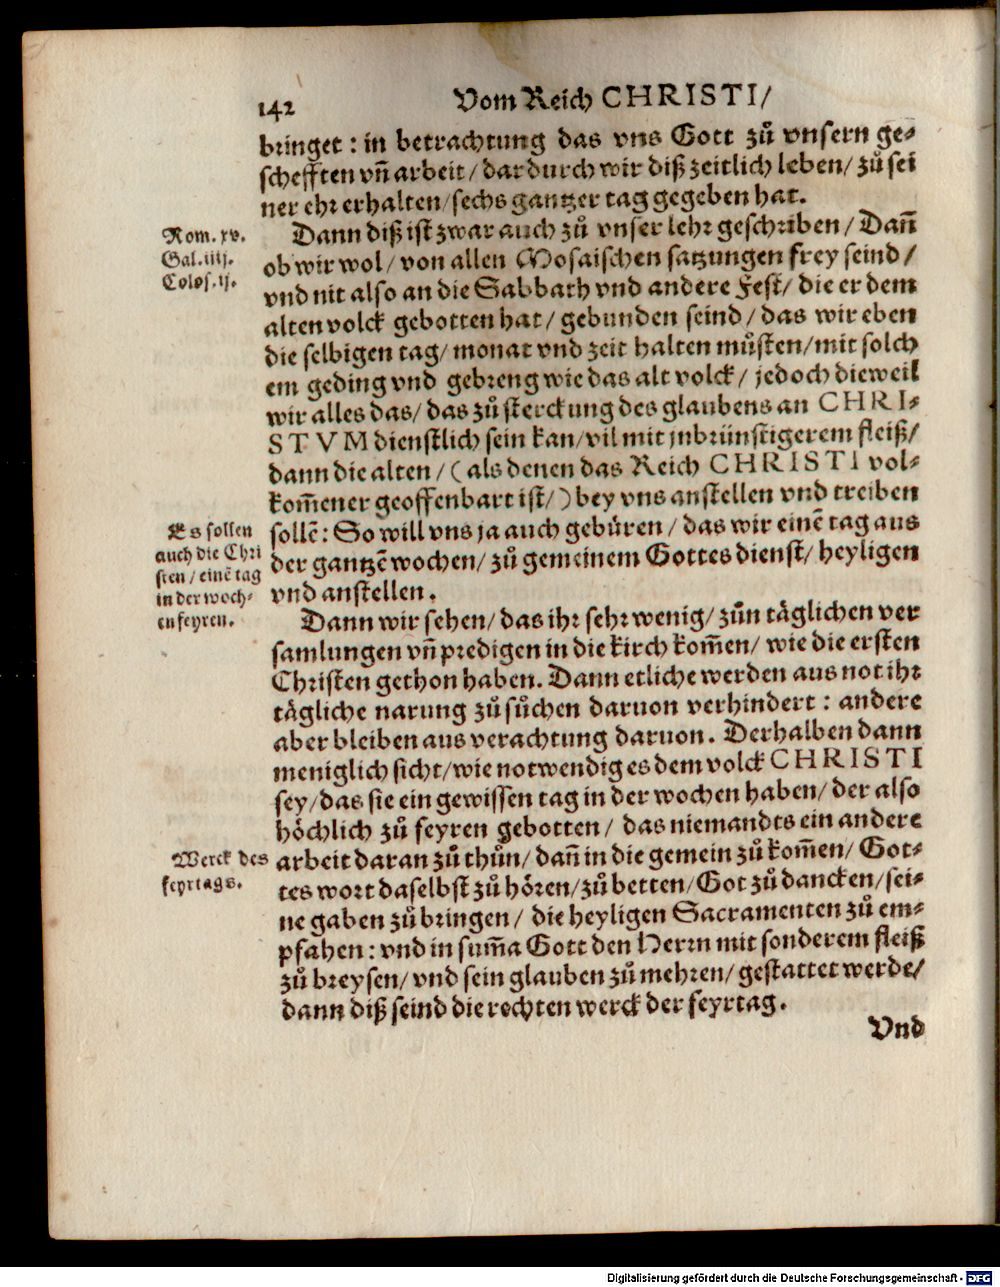 142 Vom Reich CHRISTI/
bringet: in betrachtung das vns Gott zů vnsern ge-
schefften vñ arbeit/ dardurch wir diß zeitlich leben/ zů sei
ner ehr erhalten/ sechs gantzer tag gegeben hat.
Rom. xv.
Gal. iiij.
Colos. ij.
Dann diß ist zwar auch zů vnser lehr geschriben/ Dañ
ob wir wol/ von allen Mosaischen satzungen frey seind/
vnd nit also an die Sabbath vnd andere Fest/ die er dem
alten volck gebotten hat/ gebunden seind/ das wir eben
die selbigen tag/ monat vnd zeit halten můsten/ mit solch
em geding vnd gebreng wie das alt volck/ jedoch dieweil
wir alles das/ das zů sterckung des glaubens an CHRI-
STVM dienstlich sein kan/ vil mit jnbrünstigerem fleiß/
dann die alten/ (als denen das Reich CHRISTI vol-
kom̃ener geoffenbart ist/) bey vns anstellen vnd treiben
Es sollen
auch die Chri
sten/ einẽ tag
in der woch-
en feyren.
sollẽ: So will vns ja auch gebüren/ das wir einẽ tag aus
der gantzẽ wochen/ zů gemeinem Gottes dienst/ heyligen
vnd anstellen.
Dann wir sehen/ das ihr sehr wenig/ zůn täglichen ver
samlungen vñ predigen in die kirch kom̃en/ wie die ersten
Christen gethon haben. Dann etliche werden aus not ihr
tägliche narung zů sůchen daruon verhindert: andere
aber bleiben aus verachtung daruon. Derhalben dann
meniglich sicht/ wie notwendig es dem volck CHRISTI
sey/ das sie ein gewissen tag in der wochen haben/ der also
höchlich zů feyren gebotten/ das niemandts ein andere
Werck des
feyrtags.
arbeit daran zů thůn/ dañ in die gemein zů kom̃en/ Got-
tes wort daselbst zů hören/ zů betten/ Got zů dancken/ sei-
ne gaben zů bringen/ die heyligen Sacramenten zů em-
pfahen: vnd in sum̃a Gott den Herrn mit sonderem fleiß
zů breysen/ vnd sein glauben zů mehren/ gestattet werde/
dann diß seind die rechten werck der feyrtag.
Vnd
Digitalisierung gefördert durch die Deutsche Forschungsgemeinschaft - DFG